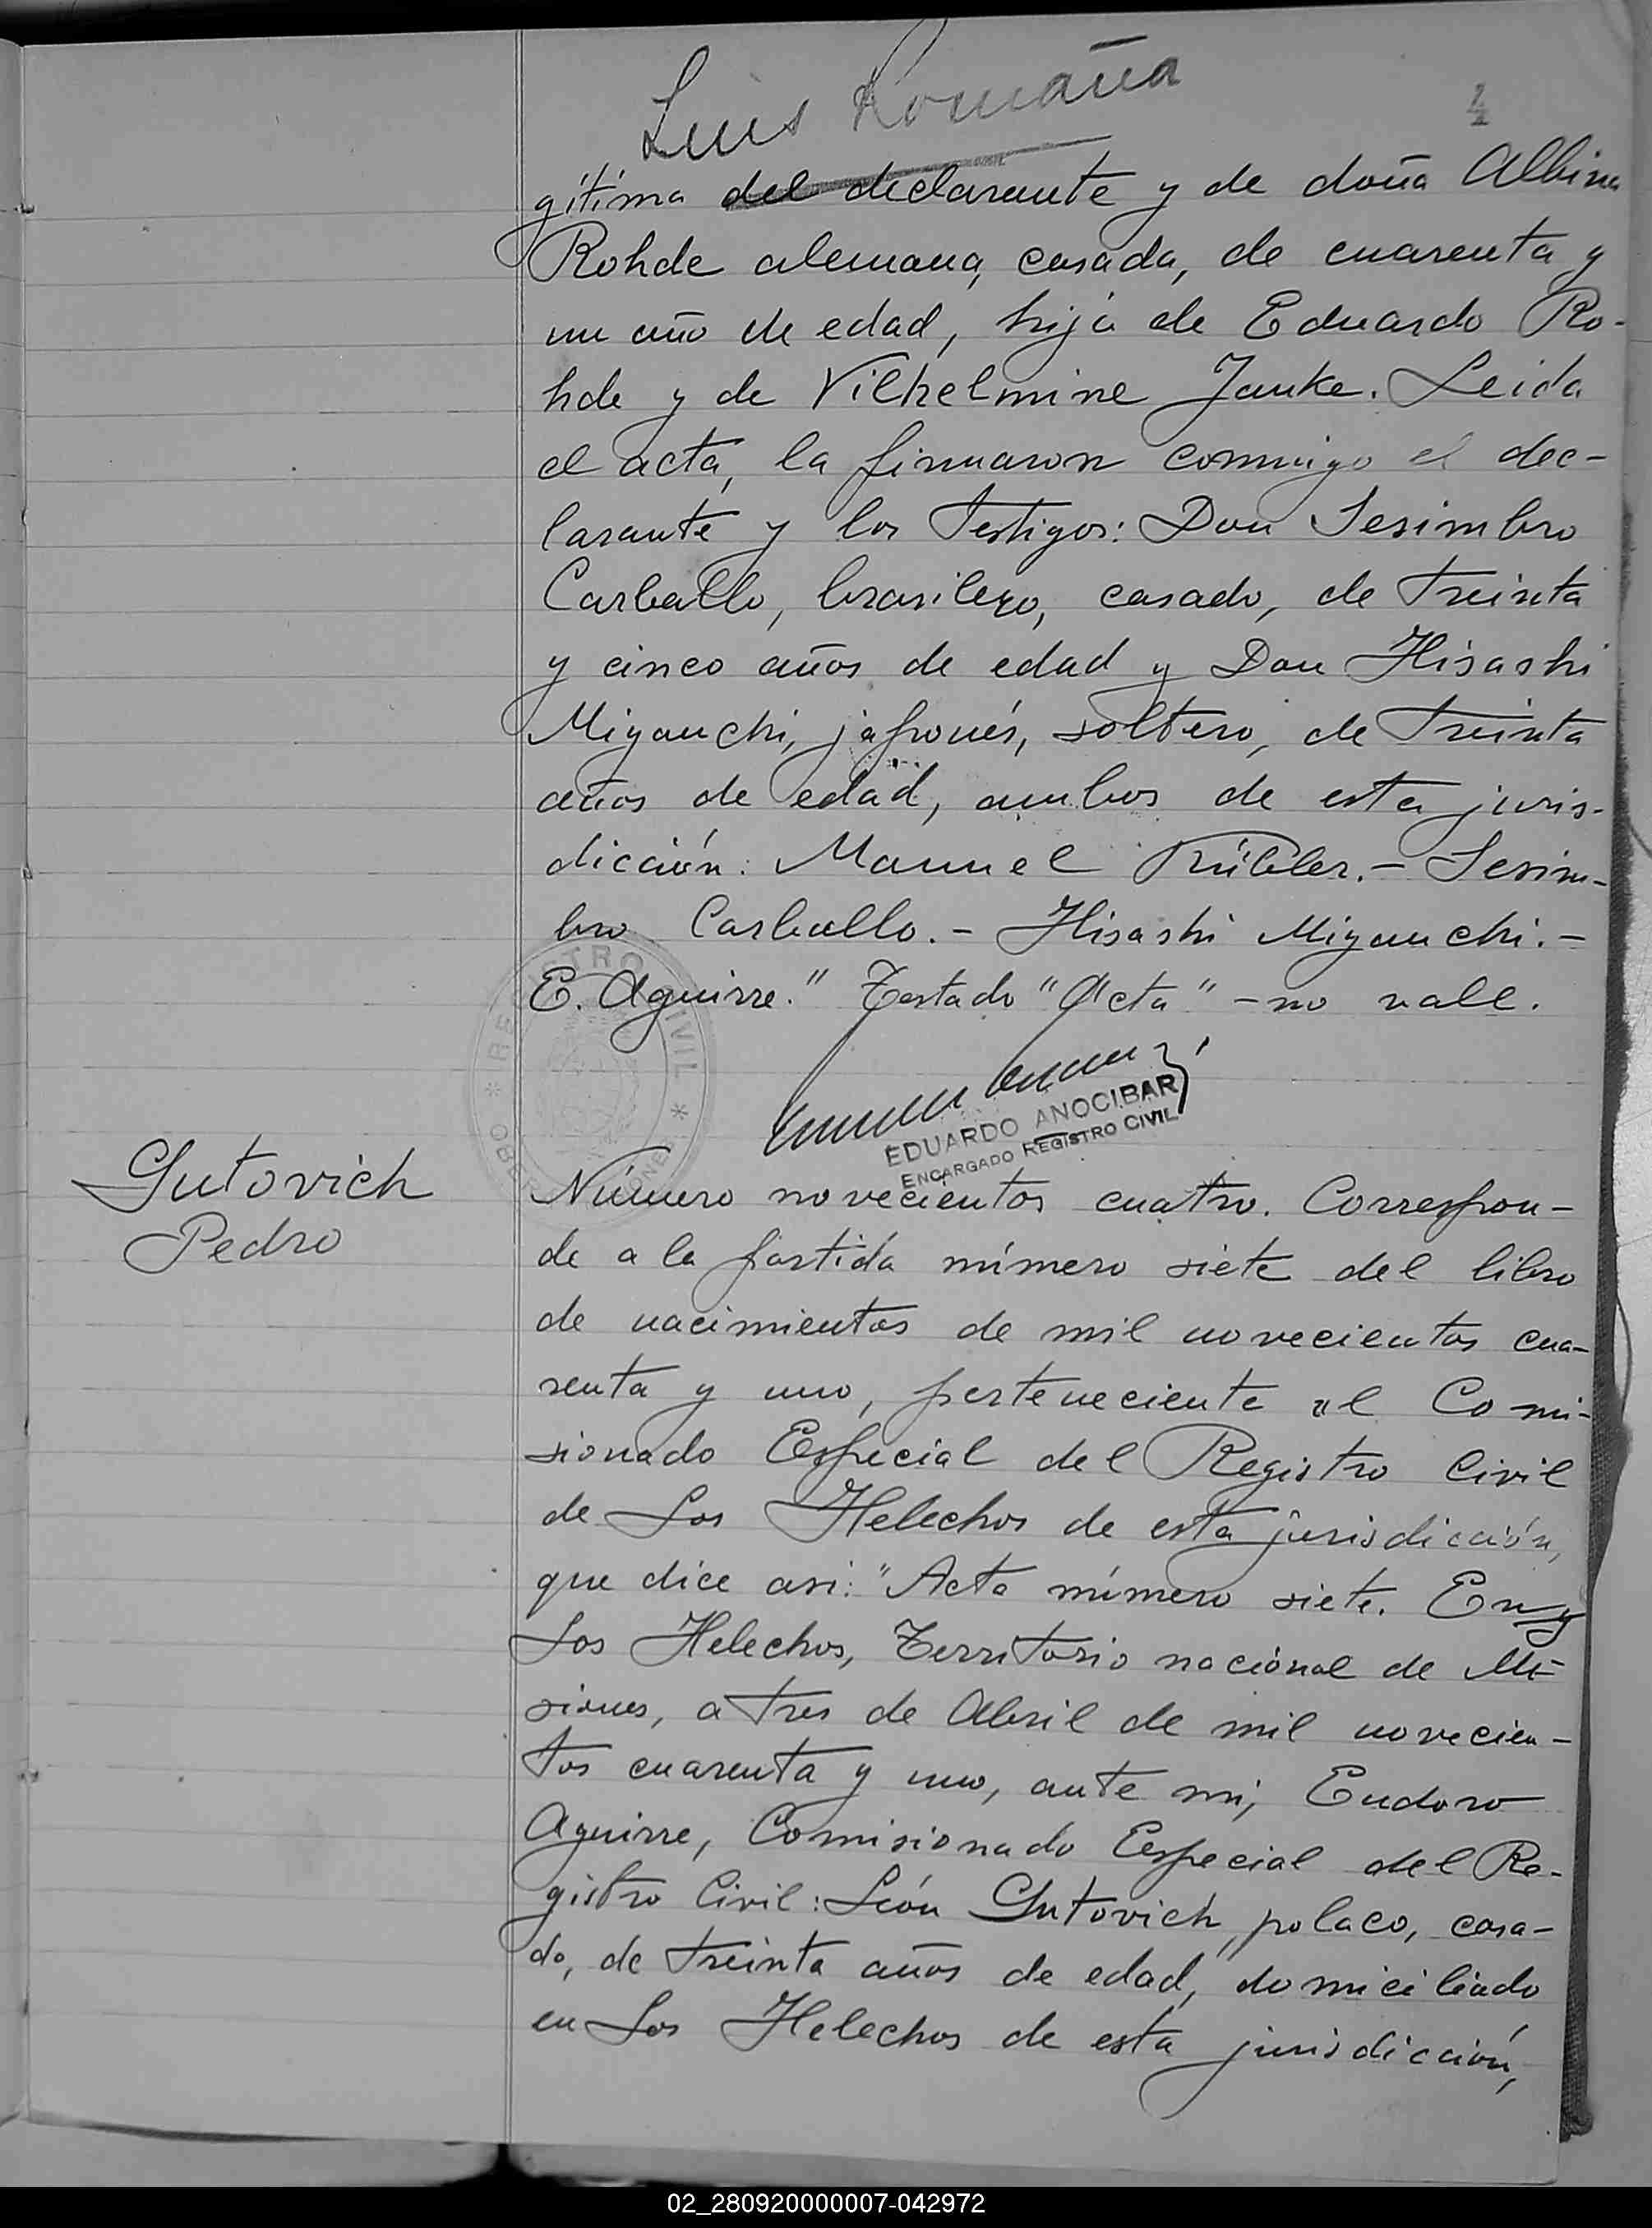 Luis Romaña
4
gítima del declarante y de doña Albina
Rohde alemana, casada, de cuarenta y
un año de edad, hija de Eduardo Ro-
hde y de Vilhelmine Janke. Leida
el acta, la firmaron conmigo el dec-
larante y los testigos: Don Sesimbro
Carballo, brasilero, casado, de treinta
y cinco años de edad y Don Hisashi
Miyauchi, japonés, soltero, de treinta
años de edad, ambos de esta juris-
dicción: Manuel Kübler.- Sesim-
bro Carballo.- Hisashi Miyauchi.-
E. Aguirre." Testado "Acta" - no vale.
REGISTRO CIVIL
EDUARDO ANOCIBAR
ENCARGADO REGISTRO CIVIL
Gutovich
Pedro
Número novecientos cuatro. Correspon-
de a la partida número siete del libro
de nacimientos de mil novecientos cua-
renta y uno, perteneciente al Comi-
sionado Especial del Registro Civil
de Los Helechos de esta jurisdicción,
que dice asi: "Acta número siete. En
Los Helechos, Territorio nacional de Mi-
siones, a tres de Abril de mil novecien-
tos cuarenta y uno, ante mi, Eudoro
Aguirre, Comisionado Especial del Re-
gistro Civil: León Gutovich, polaco, casa-
do, de treinta años de edad, domiciliado
en Los Helechos de esta jurisdicción,
02_280920000007-042972